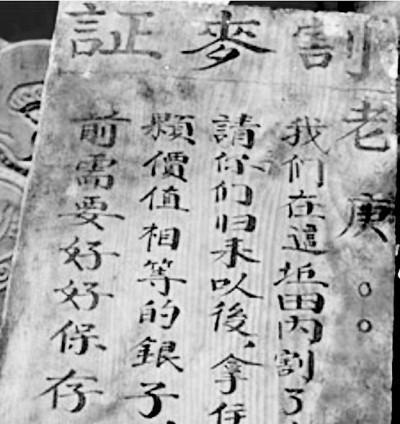 割麥証
老庚。。
我们在這坵田内割了
請你们归来以後，拿
顆價值相等的銀子，
前需要好好保存